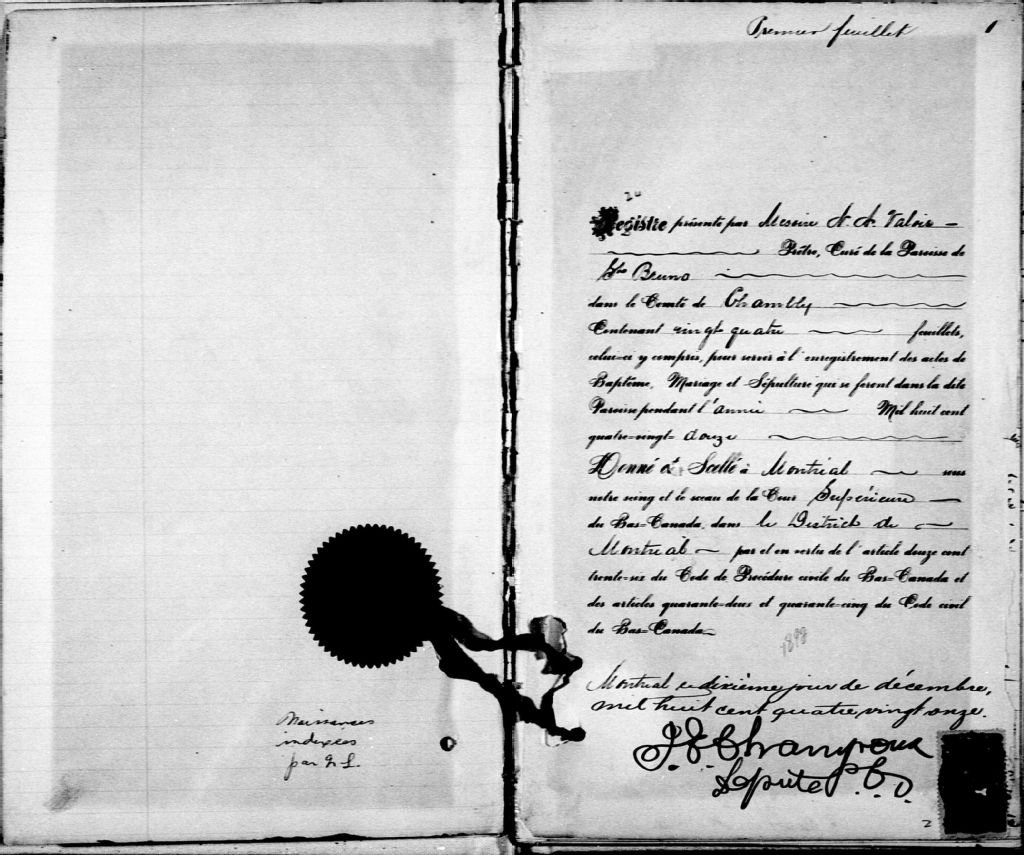 Naissances
indexées
par
Premier feuillet 1
24
Registre présenté par Messire N. A. Valois
Prêtre, Curé de la Paroisse de
St Bruno
dans le Comté de Chambly
Contenant vingt quatre feuillets,
celui-ci y compris, pour servir à l'enregistrement des actes de
Baptême, Mariage et Sépulture qui se feront dans la dite
Paroisse pendant l'année Mil huit cent
quatre-vingt- douze
Donné et Scellé à Montréal sous
notre seing et le sceau de la Cour Supérieure
du Bas-Canada, dans le District de
Montréal par et en vertu de l'article douze cent
trente-six du Code de Procédure civile du Bas-Canada et
des articles quarante-deux et quarante-cinq du Code civil
du Bas-Canada
Montréal ce dixième jour de décembre,
mil huit cent quatre vingt onze.
J. E. Champoux
Député P. C. S.
2